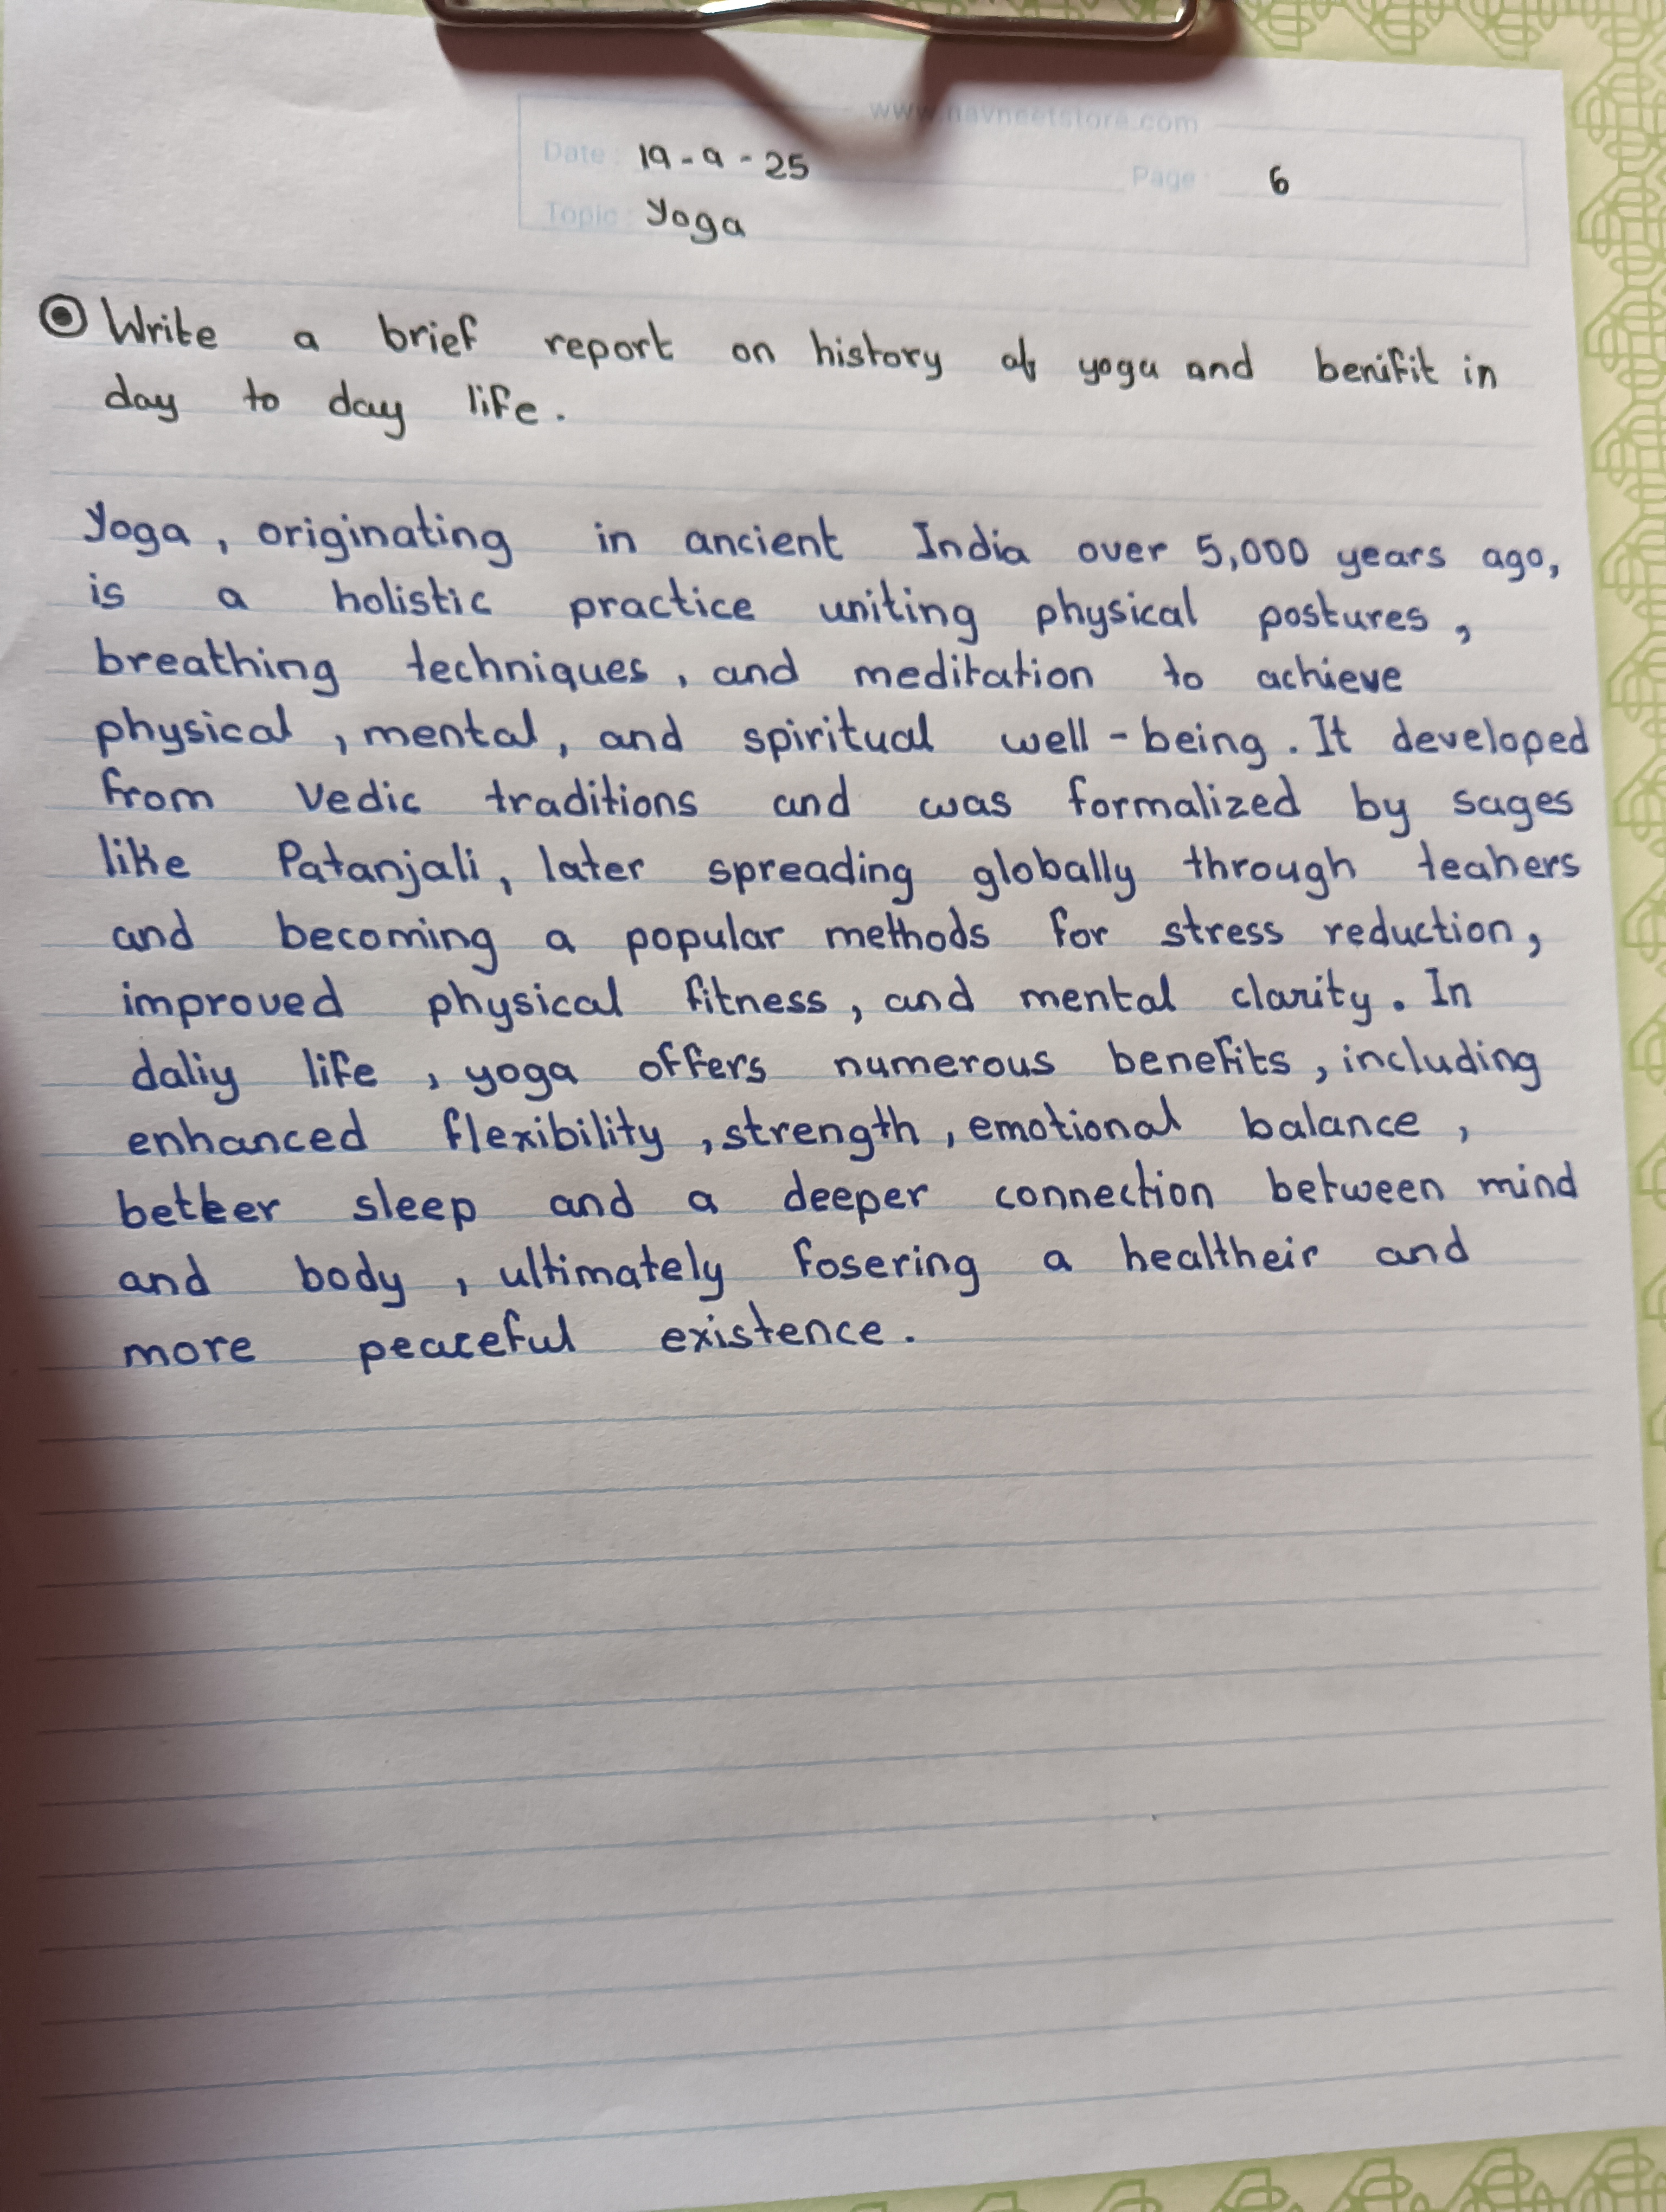 www.navneetstore.com
Date : 19-9-25 Page : 6
Topic : Yoga
Write a brief report on history of yoga and benifit in
day to day life.
Yoga, originating in ancient India over 5,000 years ago,
is a holistic practice uniting physical postures,
breathing techniques, and meditation to achieve
physical, mental, and spiritual well-being. It developed
from Vedic traditions and was formalized by sages
like Patanjali, later spreading globally through teahers
and becoming a popular methods for stress reduction,
improved physical fitness, and mental clarity. In
daliy life, yoga offers numerous benefits, including
enhanced flexibility, strength, emotional balance,
better sleep and a deeper connection between mind
and body, ultimately fosering a healtheir and
more peaceful existence.